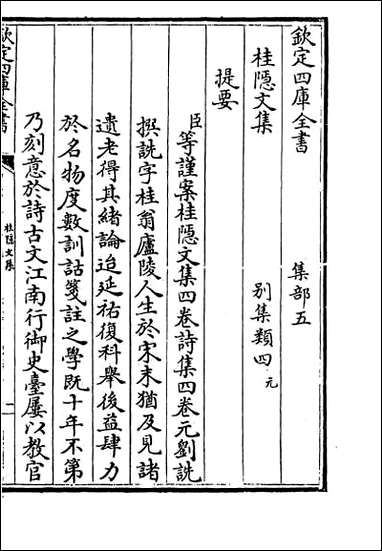 欽定四庫全書　集部五
桂隱文集　别集類四元
提要
臣等謹案桂隱文集四卷詩集四卷元劉詵
撰詵字桂翁廬陵人生於宋末猶及見諸
遺老得其緒論迨延祐復科舉後益肆力
於名物度數訓詁箋註之學既十年不第
乃刻意於詩古文江南行御史臺屢以教官
欽定四庫全書
桂隱文集
一